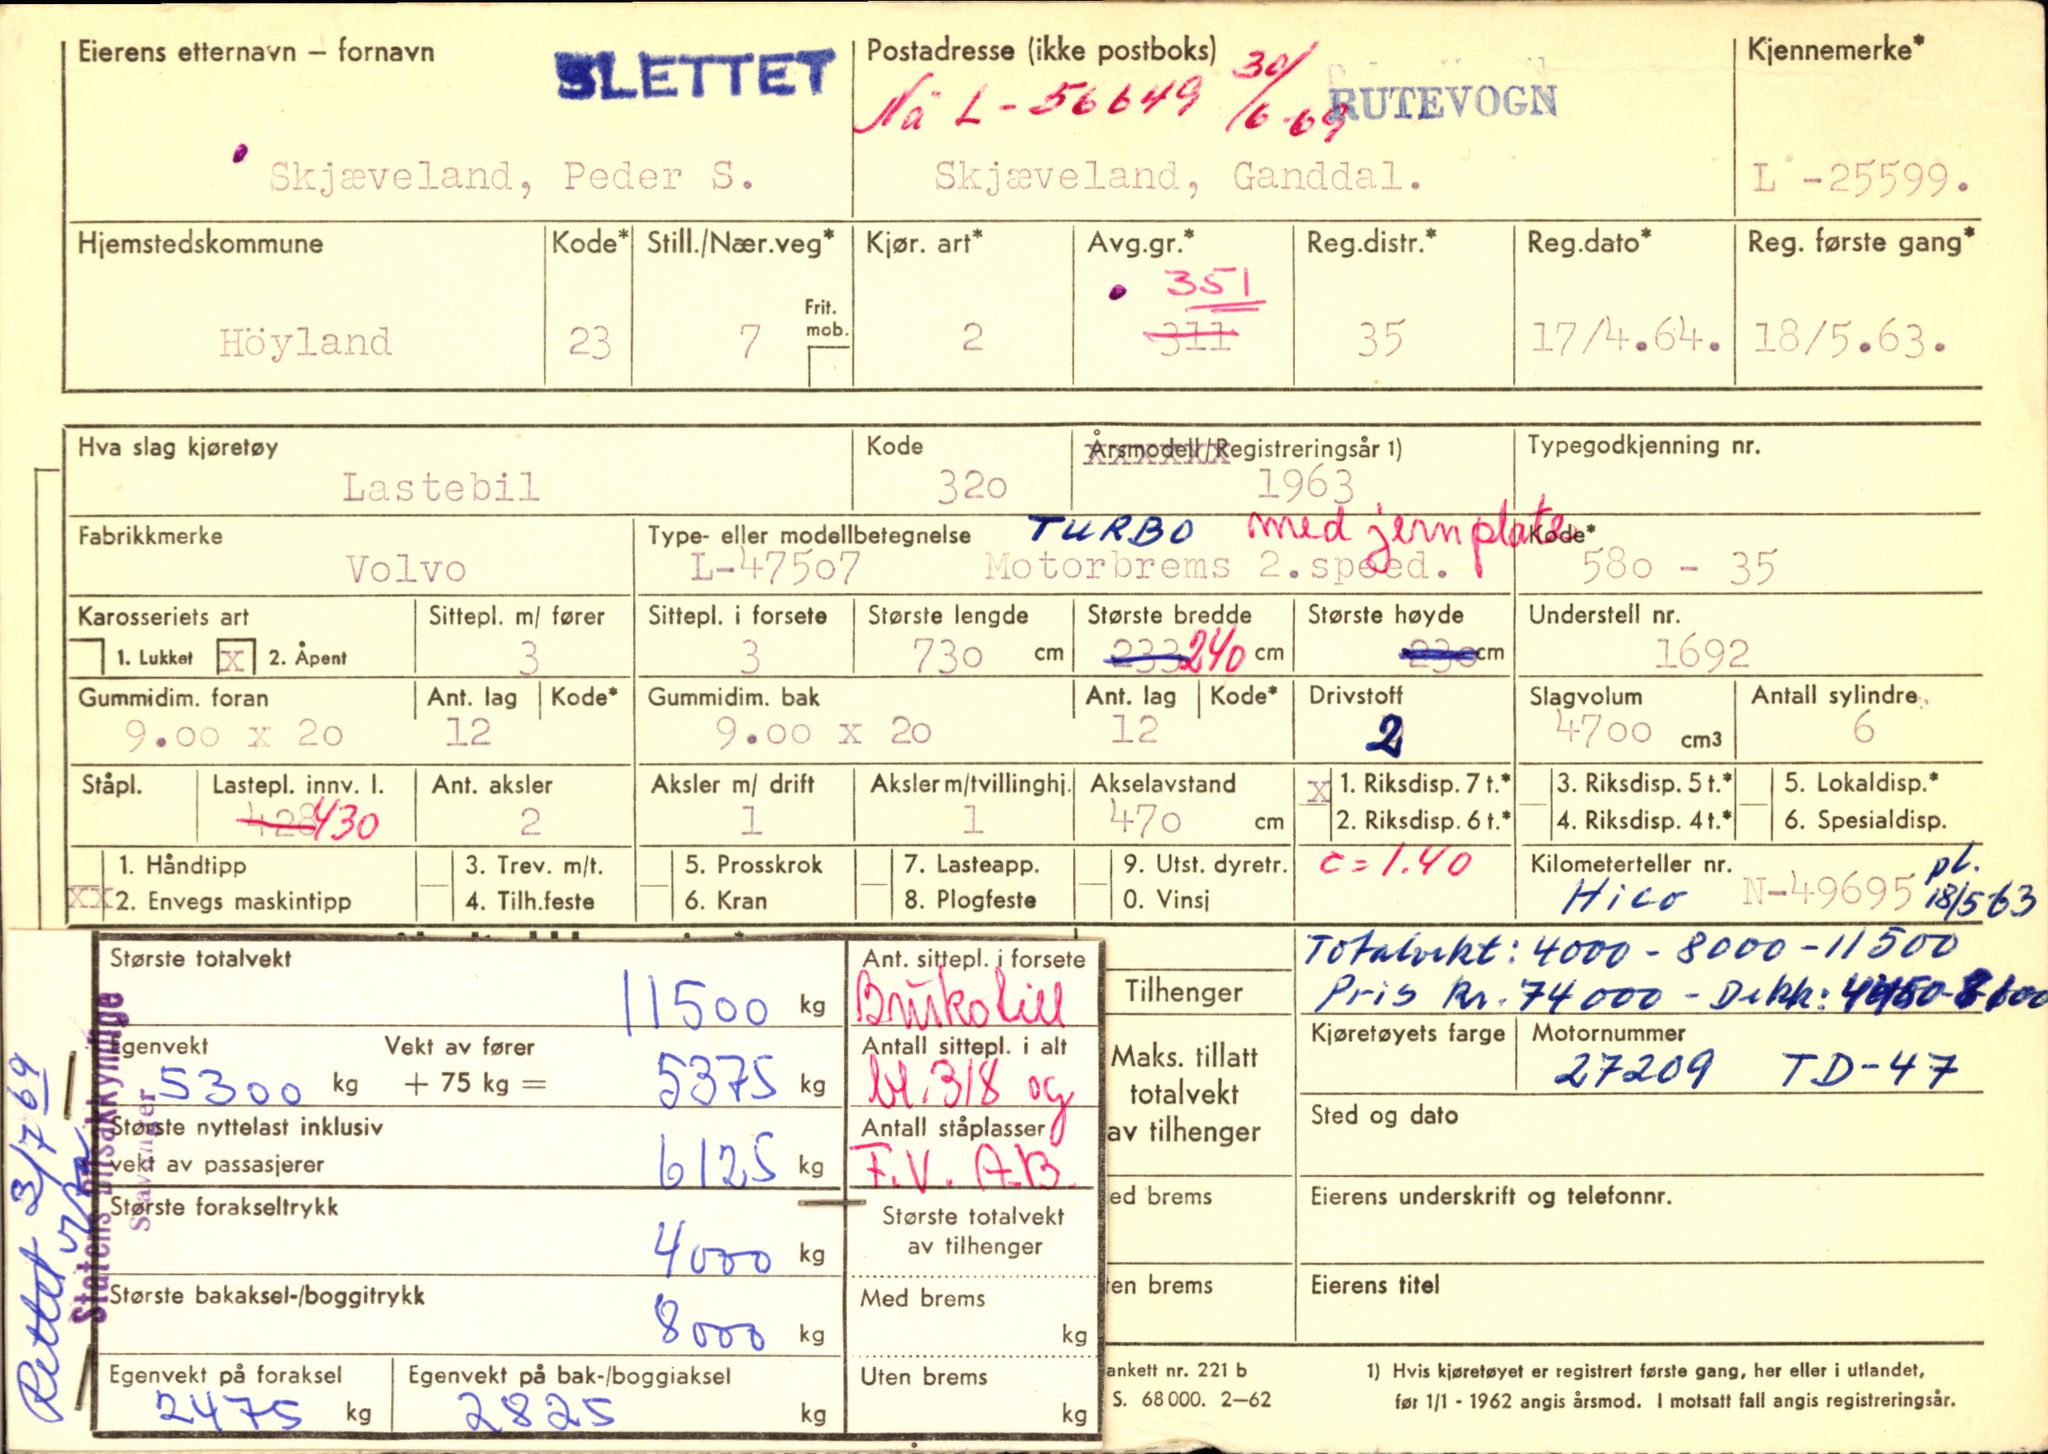 Eierens etternavn – fornavn
SLETTET
Postadresse (ikke postboks)
30/6-69
Nå L-56649
RUTEVOGN
Kjennemerke*
Skjæveland, Peder S.
Skjæveland, Ganddal.
L -25599.
Hjemstedskommune
Kode*
Still./Nær.veg*
Kjør. art*
Avg.gr.*
Reg.distr.*
Reg.dato*
Reg. første gang*
351
Frit. mob.
Höyland
23
7
2
311
35
17/4.64.
18/5.63.
Hva slag kjøretøy
Kode
Årsmodell/Registreringsår 1)
Typegodkjenning nr.
Lastebil
320
1963
Fabrikkmerke
Type- eller modellbetegnelse
TURBO
med jernplate
Kode*
Volvo
L-47507
Motorbrems 2.speed.
580 - 35
Karosseriets art
Sittepl. m/ fører
Sittepl. i forsete
Største lengde
Største bredde
Største høyde
Understell nr.
1. Lukket
x
2. Åpent
3
3
730 cm
233 240 cm
230 cm
1692
Gummidim. foran
Ant. lag
Kode*
Gummidim. bak
Ant. lag
Kode*
Drivstoff
Slagvolum
Antall sylindre
9.00 x 20
12
9.00 x 20
12
2
4700 cm3
6
Ståpl.
Lastepl. innv. l.
Ant. aksler
Aksler m/ drift
Aksler m/tvillinghj.
Akselavstand
x 1. Riksdisp. 7 t.*
3. Riksdisp. 5 t.*
5. Lokaldisp.*
428 430
2
1
1
470 cm
2. Riksdisp. 6 t.*
4. Riksdisp. 4 t.*
6. Spesialdisp.
1. Håndtipp
3. Trev. m/t.
5. Prosskrok
7. Lasteapp.
9. Utst. dyretr.
c = 1.40
Kilometerteller nr.
pl.
xx 2. Envegs maskintipp
4. Tilh.feste
6. Kran
8. Plogfeste
0. Vinsj
Hico
N-49695
18/5 63
Største totalvekt
11500 kg
Ant. sittepl. i forsete
Totalvekt: 4000 - 8000 - 11500
Tilhenger
Pris kr. 74 000 - Dekk:
Egenvekt
Vekt av fører
Antall sittepl. i alt
Maks. tillatt
Kjøretøyets farge
Motornummer
5300 kg
+ 75 kg =
5375 kg
bl. 3/8 og
totalvekt
27209 TD-47
Største nyttelast inklusiv
Antall ståplasser
av tilhenger
Sted og dato
vekt av passasjerer
6125 kg
F.V. A.B.
Største forakseltrykk
Største totalvekt
ed brems
Eierens underskrift og telefonnr.
4000 kg
av tilhenger
Største bakaksel-/boggitrykk
Med brems
en brems
Eierens titel
8000 kg
kg
Egenvekt på foraksel
Egenvekt på bak-/boggiaksel
Uten brems
2475 kg
2825 kg
kg
ankett nr. 221 b
S. 68 000. 2–62
1) Hvis kjøretøyet er registrert første gang, her eller i utlandet,
før 1/1 - 1962 angis årsmod. I motsatt fall angis registreringsår.
Rettet 3/7 69
Statens bilsakkyndige
Stavanger